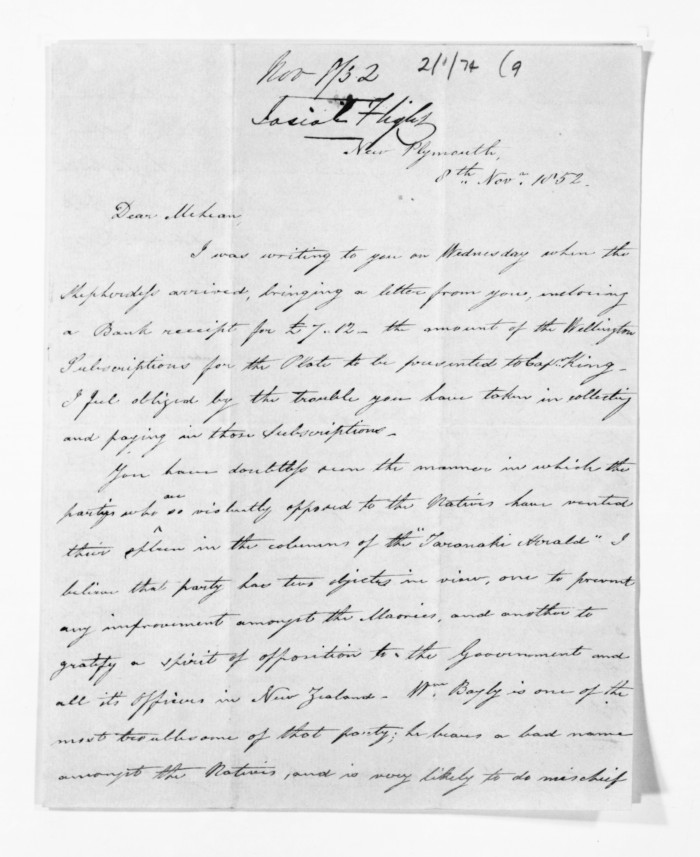 Nov 8/52 2/1/74 (9
Josiah Flight
New Plymouth,
8th Novr. 1852.
Dear McLean,
I was writing to you on Wednesday when the
Shepherdess arrived, bringing a letter from you, inclosing
a Bank receipt for £7.12 - the amount of the Wellington
Subscriptions for the Plate to be presented to Capn. King -
I feel obliged by the trouble you have taken in collecting
and paying in those Subscriptions -
You have doubtless seen the manner in which the
partys who are so violently opposed to the Natives have vented
their spleen in the columns of the "Taranaki Herald" I
believe that party has two objects in view, one to prevent
any improvement amongst the Maories, and another to
gratify a spirit of opposition to the Government and
all its Officers in New Zealand - Wm. Bayly is one of the
most troublesome of that party; he bears a bad name
amongst the Natives, and is very likely to do mischief